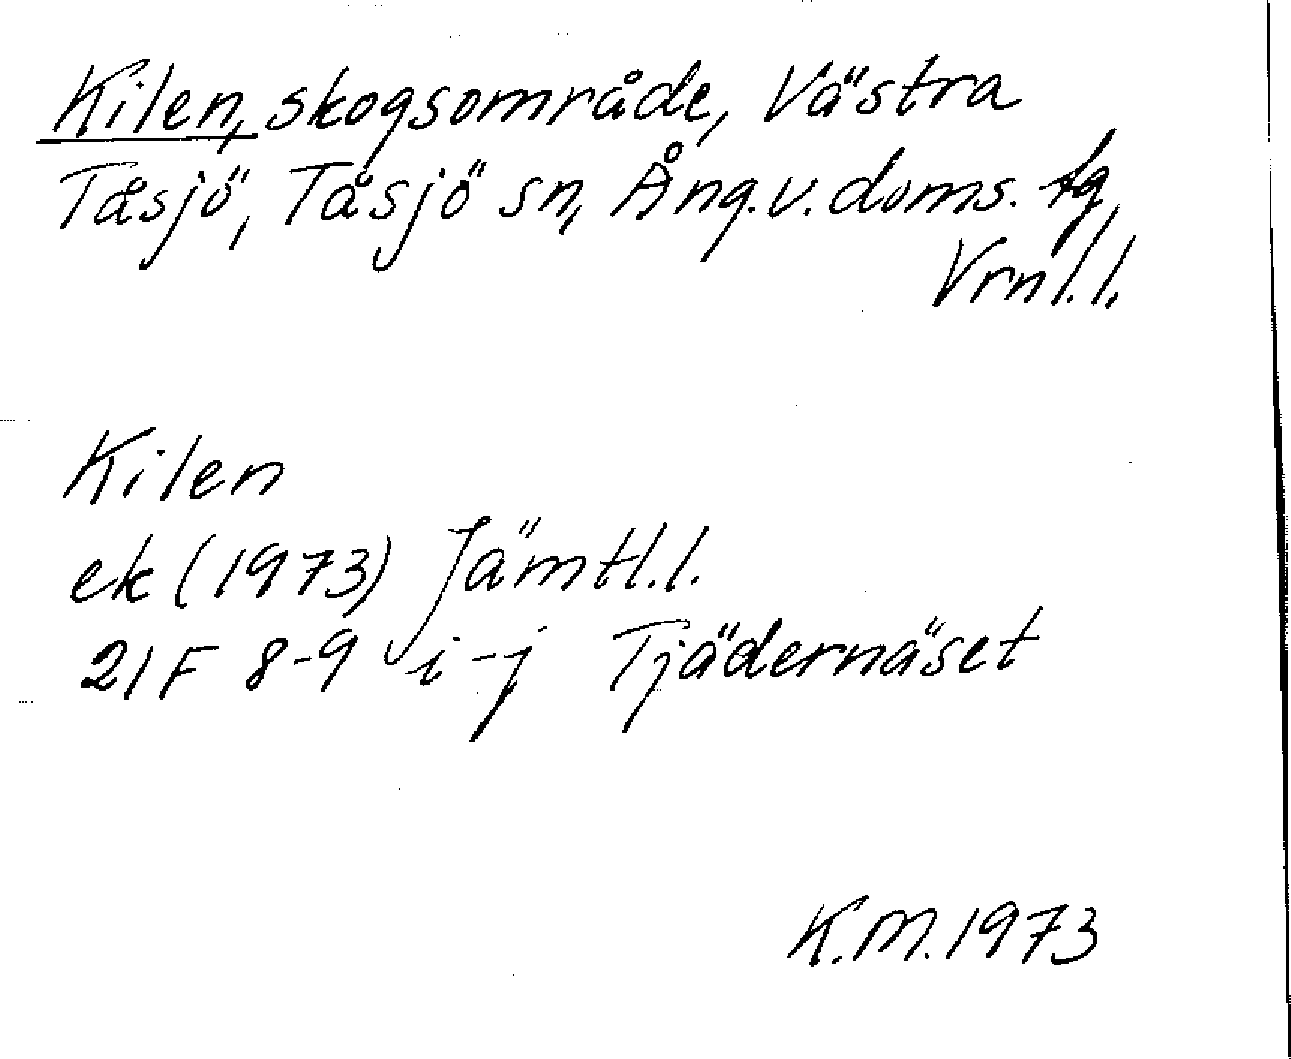 Kilen, skogsområde, Västra
Tåsjö, Tåsjö sn, Ång.v.doms. tg,
Vrnl.l.
Kilen
ek (1973) Jämtl.l.
21F 8-9 i-j Tjädernäset
K.M. 1973